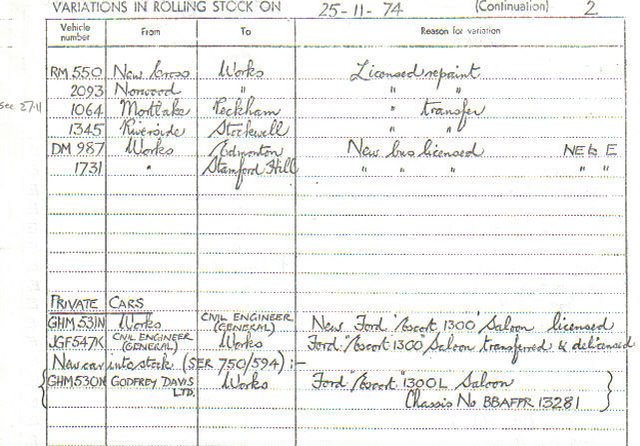 VARIATIONS IN ROLLING STOCK ON 25-11-74 (Continuation) 2
Vehicle number From To Reason for variation
RM 550 New Cross Works Licensed repaint
2093 Norwood " " "
See 27-11 1064 Mortlake Peckham " transfer
1345 Riverside Stockwell " "
DM 987 Works Edmonton New bus licensed NEb E
1731 " Stamford Hill " " " " "
PRIVATE CARS
GHM 531N Works CIVIL ENGINEER (GENERAL) New Ford "Escort 1300" Saloon licensed
JGF 547K CIVIL ENGINEER (GENERAL) Works Ford "Escort 1300" Saloon transferred & delicensed
New car into stock (SER 750/594) :-
GHM 530N GODFREY DAVIS LTD. Works Ford "Escort" 1300L Saloon
Chassis No BBAFPR 13281